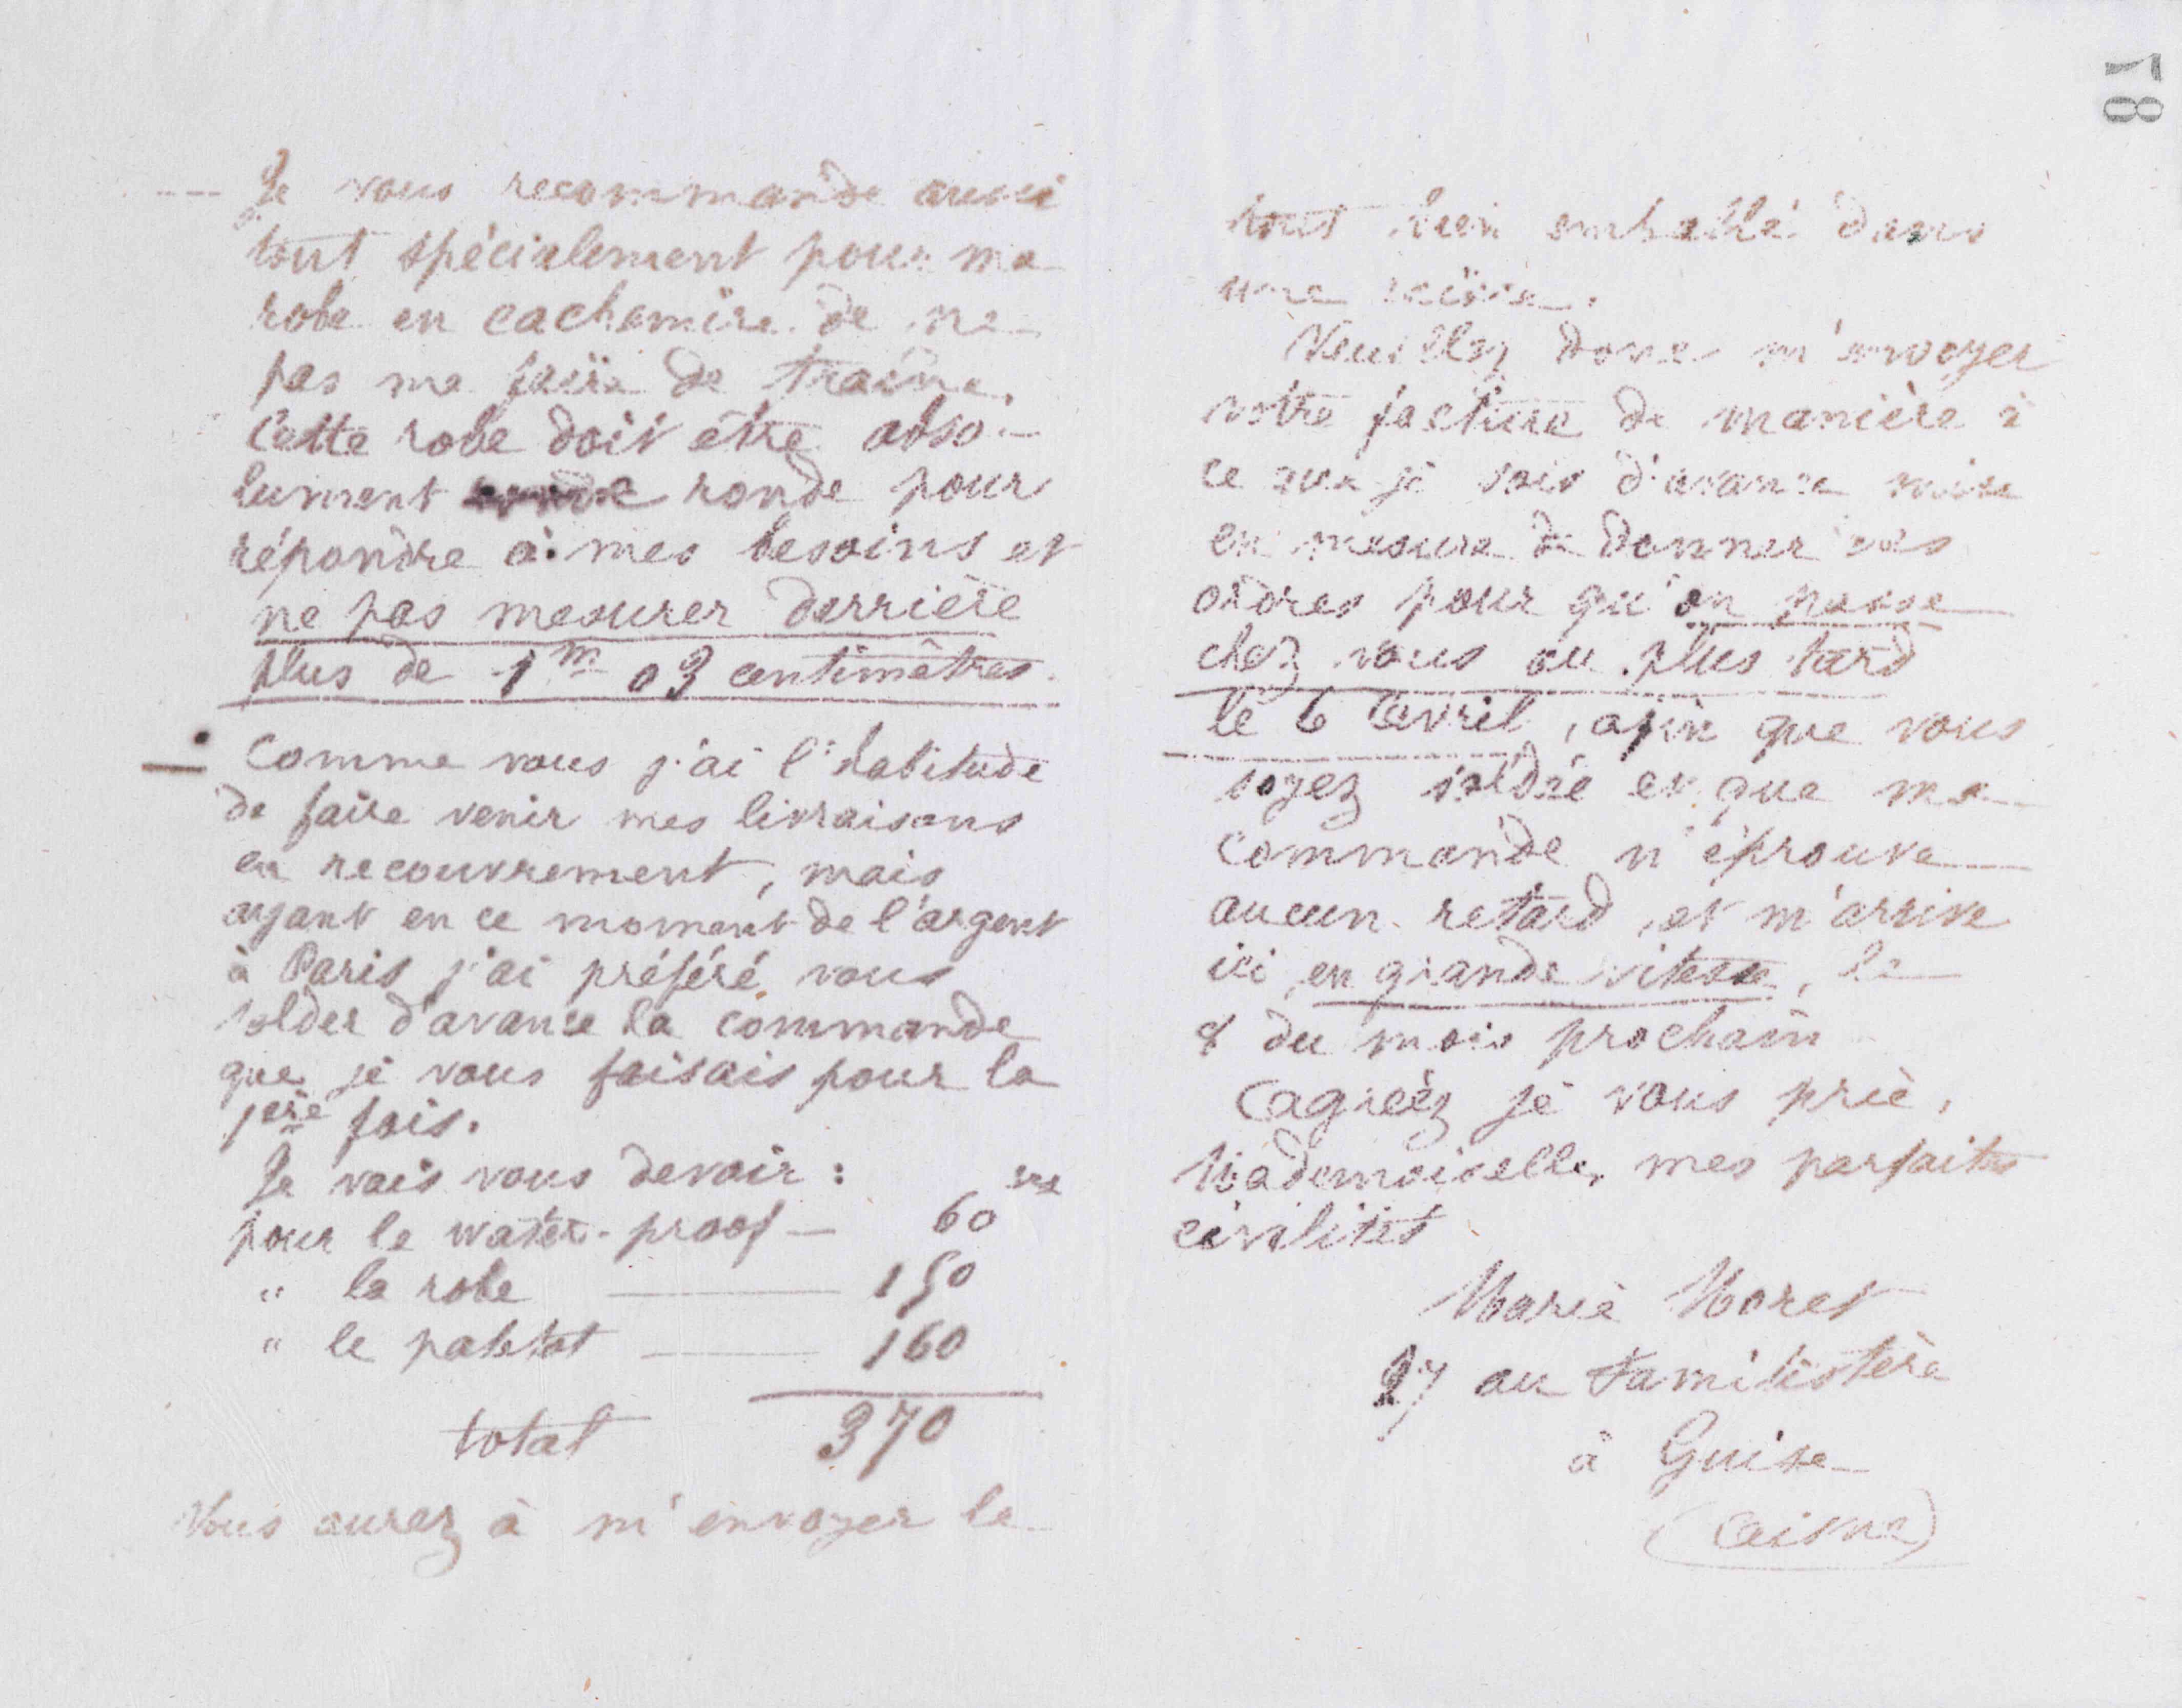 78
Je vous recommande aussi
tout spécialement pour ma
robe en cachemire de ne
pas me faire de traîne.
Cette robe doit être abso-
lument ronde pour
répondre à mes besoins et
ne pas mesurer derrière
plus de 1m 03 centimètres.
Comme vous j'ai l'habitude
de faire venir mes livraisons
en recouvrement, mais
ayant en ce moment de l'argent
à Paris j'ai préféré vous
solder d'avance la commande
que je vous faisais pour la
1ère fois.
Je vais vous devoir :
pour le water-proof — 60
" la robe — 150
" le paletot — 160
total 370
Vous aurez à m'envoyer le
tout bien emballé dans
une caisse.
Veuillez donc m'envoyer
votre facture de manière à
ce que je sois d'avance mise
en mesure de donner des
ordres pour qu'on passe
chez vous au plus tard
le 6 avril, afin que vous
soyez soldée et que ma
commande n'éprouve
aucun retard, et m'arrive
ici en grande vitesse, le
8 du mois prochain
Agréez je vous prie,
Mademoiselle, mes parfaites
civilités
Marie Moret
27 au Familistère
à Guise
(Aisne)